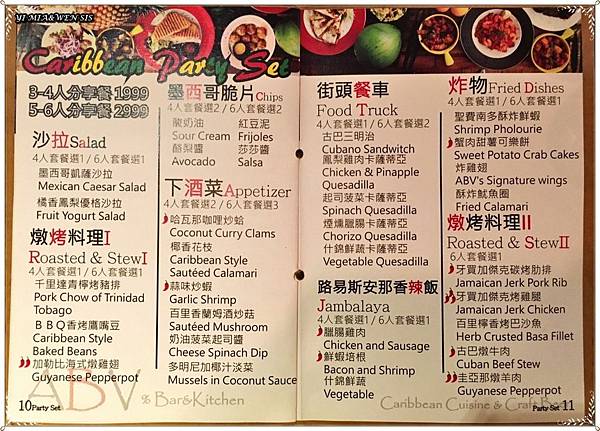 YI MIA&WEN SIS
Caribbean Party Set
3-4人分享餐 1999
5-6人分享餐 2999
沙拉Salad
4人套餐選1 / 6人套餐選1
墨西哥凱薩沙拉
Mexican Caesar Salad
橘香鳳梨優格沙拉
Fruit Yogurt Salad
燉烤料理I
Roasted & StewI
4人套餐選1 / 6人套餐選1
千里達青檸烤豬排
Pork Chow of Trinidad
Tobago
ＢＢＱ香烤鷹嘴豆
Caribbean Style
Baked Beans
加勒比海式燉雞翅
Guyanese Pepperpot
ABV
10Party Set
墨西哥脆片Chips
4人套餐選2 / 6人套餐選2
酸奶油 紅豆泥
Sour Cream Frijoles
酪梨醬 莎莎醬
Avocado Salsa
下酒菜Appetizer
4人套餐選2 / 6人套餐選3
哈瓦那咖哩炒蛤
Coconut Curry Clams
椰香花枝
Caribbean Style
Sautéed Calamari
蒜味炒蝦
Garlic Shrimp
百里香蘭姆酒炒菇
Sautéed Mushroom
奶油菠菜起司醬
Cheese Spinach Dip
多明尼加椰汁淡菜
Mussels in Coconut Sauce
Bar&Kitchen
街頭餐車
Food Truck
4人套餐選1 / 6人套餐選2
古巴三明治
Cubano Sandwitch
鳳梨雞肉卡薩蒂亞
Chicken & Pinapple
Quesadilla
起司菠菜卡薩蒂亞
Spinach Quesadilla
煙燻臘腸卡薩蒂亞
Chorizo Quesadilla
什錦鮮蔬卡薩蒂亞
Vegetable Quesadilla
路易斯安那香辣飯
Jambalaya
4人套餐選1 / 6人套餐選1
臘腸雞肉
Chicken and Sausage
鮮蝦培根
Bacon and Shrimp
什錦鮮蔬
Vegetable
炸物Fried Dishes
4人套餐選1 / 6人套餐選1
聖費南多酥炸鮮蝦
Shrimp Pholourie
蟹肉甜薯可樂餅
Sweet Potato Crab Cakes
炸雞翅
ABV's Signature wings
酥炸魷魚圈
Fried Calamari
燉烤料理II
Roasted & StewII
6人套餐選1
牙買加傑克碳烤肋排
Jamaican Jerk Pork Rib
牙買加傑克烤雞腿
Jamaican Jerk Chicken
百里檸香烤巴沙魚
Herb Crusted Basa Fillet
古巴燉牛肉
Cuban Beef Stew
圭亞那燉羊肉
Guyanese Pepperpot
Caribbean Cuisine & Craft Beer
Party Set 11